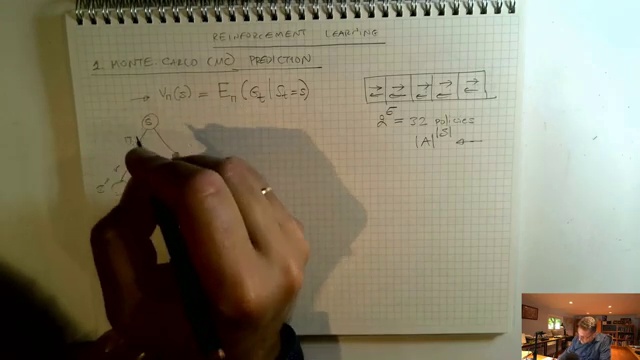 REINFORCEMENT LEARNING
1. MONTE-CARLO (MC) PREDICTION
→ Vπ(s) = Eπ(Gt | St = s)
2^5 = 32 policies
|A|^|S| ←
S
π